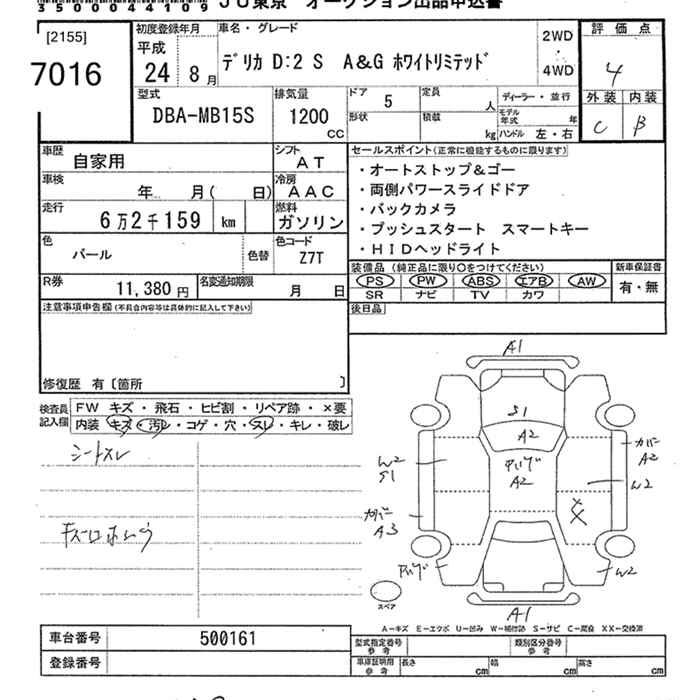 35000044109 JU東京 オークション出品申込書
[2155]
7016
初度登録年月
平成
24 8月
車名・グレード
デリカ D:2 S A&G ホワイトリミテッド
2WD
・
4WD
評価点
4
外装 内装
C B
型式
DBA-MB15S
排気量
1200
CC
ドア
5
形状
定員
人
積載
kg
ディーラー・並行
モデル年式
年
ハンドル 左・右
車歴
自家用
シフト
AT
車検
年 月( 日)
冷房
AAC
走行
6万2千159 km
燃料
ガソリン
色
パール
色替
色コード
Z7T
R券
11,380円
名変通知期限
月 日
セールスポイント(正常に機能するものに限ります)
・オートストップ&ゴー
・両側パワースライドドア
・バックカメラ
・プッシュスタート スマートキー
・HIDヘッドライト
装備品(純正品に限り○をつけてください)
PS PW ABS エアB AW
SR ナビ TV カワ
新車保証書
有・無
後日品
注意事項申告欄(不具合内容等は具体的に記入して下さい)
修復歴 有〔箇所 〕
検査員記入欄
FW キズ・飛石・ヒビ割・リペア跡・×要
内装 キズ・汚レ・コゲ・穴・スレ・キレ・破レ
シートスレ
A1
S1
A2
A2
W2
S1
カバー
A2
W2
カバー
A3
X
W2
A1
スペア
A－キズ E－エクボ U－凹み W－補修跡 S－サビ C－腐食 XX－交換済
車台番号
500161
登録番号
型式指定番号
参考
類別区分番号
参考
車庫証明用
参考
長さ cm
幅 cm
高さ cm